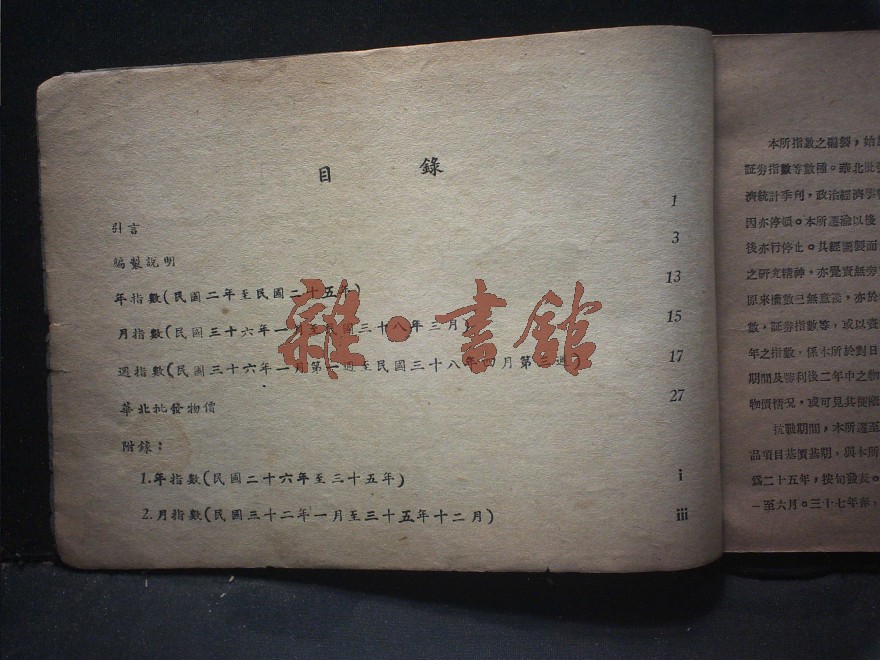 目錄
引言 1
編製說明 3
年指數(民國二年至民國二十五年) 13
月指數(民國三十六年一月至民國三十八年三月) 15
週指數(民國三十六年一月第一週至民國三十八年四月第三週) 17
華北批發物價 27
附錄：
1.年指數(民國二十六年至三十五年) i
2.月指數(民國三十二年一月至三十五年十二月) iii
雜·書館
本所指數之編製，始於
証券指數等數種。華北批發
濟統計季刊，政治經濟學
因亦停頓。本所遷渝以後
後亦行停止。其經編製而
之研究精神，亦覺責無旁
原來指數已無意義，亦於
數，証券指數等，或以資
年之指數，係本所於對日
期間及勝利後二年中之物
物價情況，或可見其梗概
抗戰期間，本所遷至
品項目基價基期，與本所
為二十五年，按旬發表。
一至六月。三十七年春，